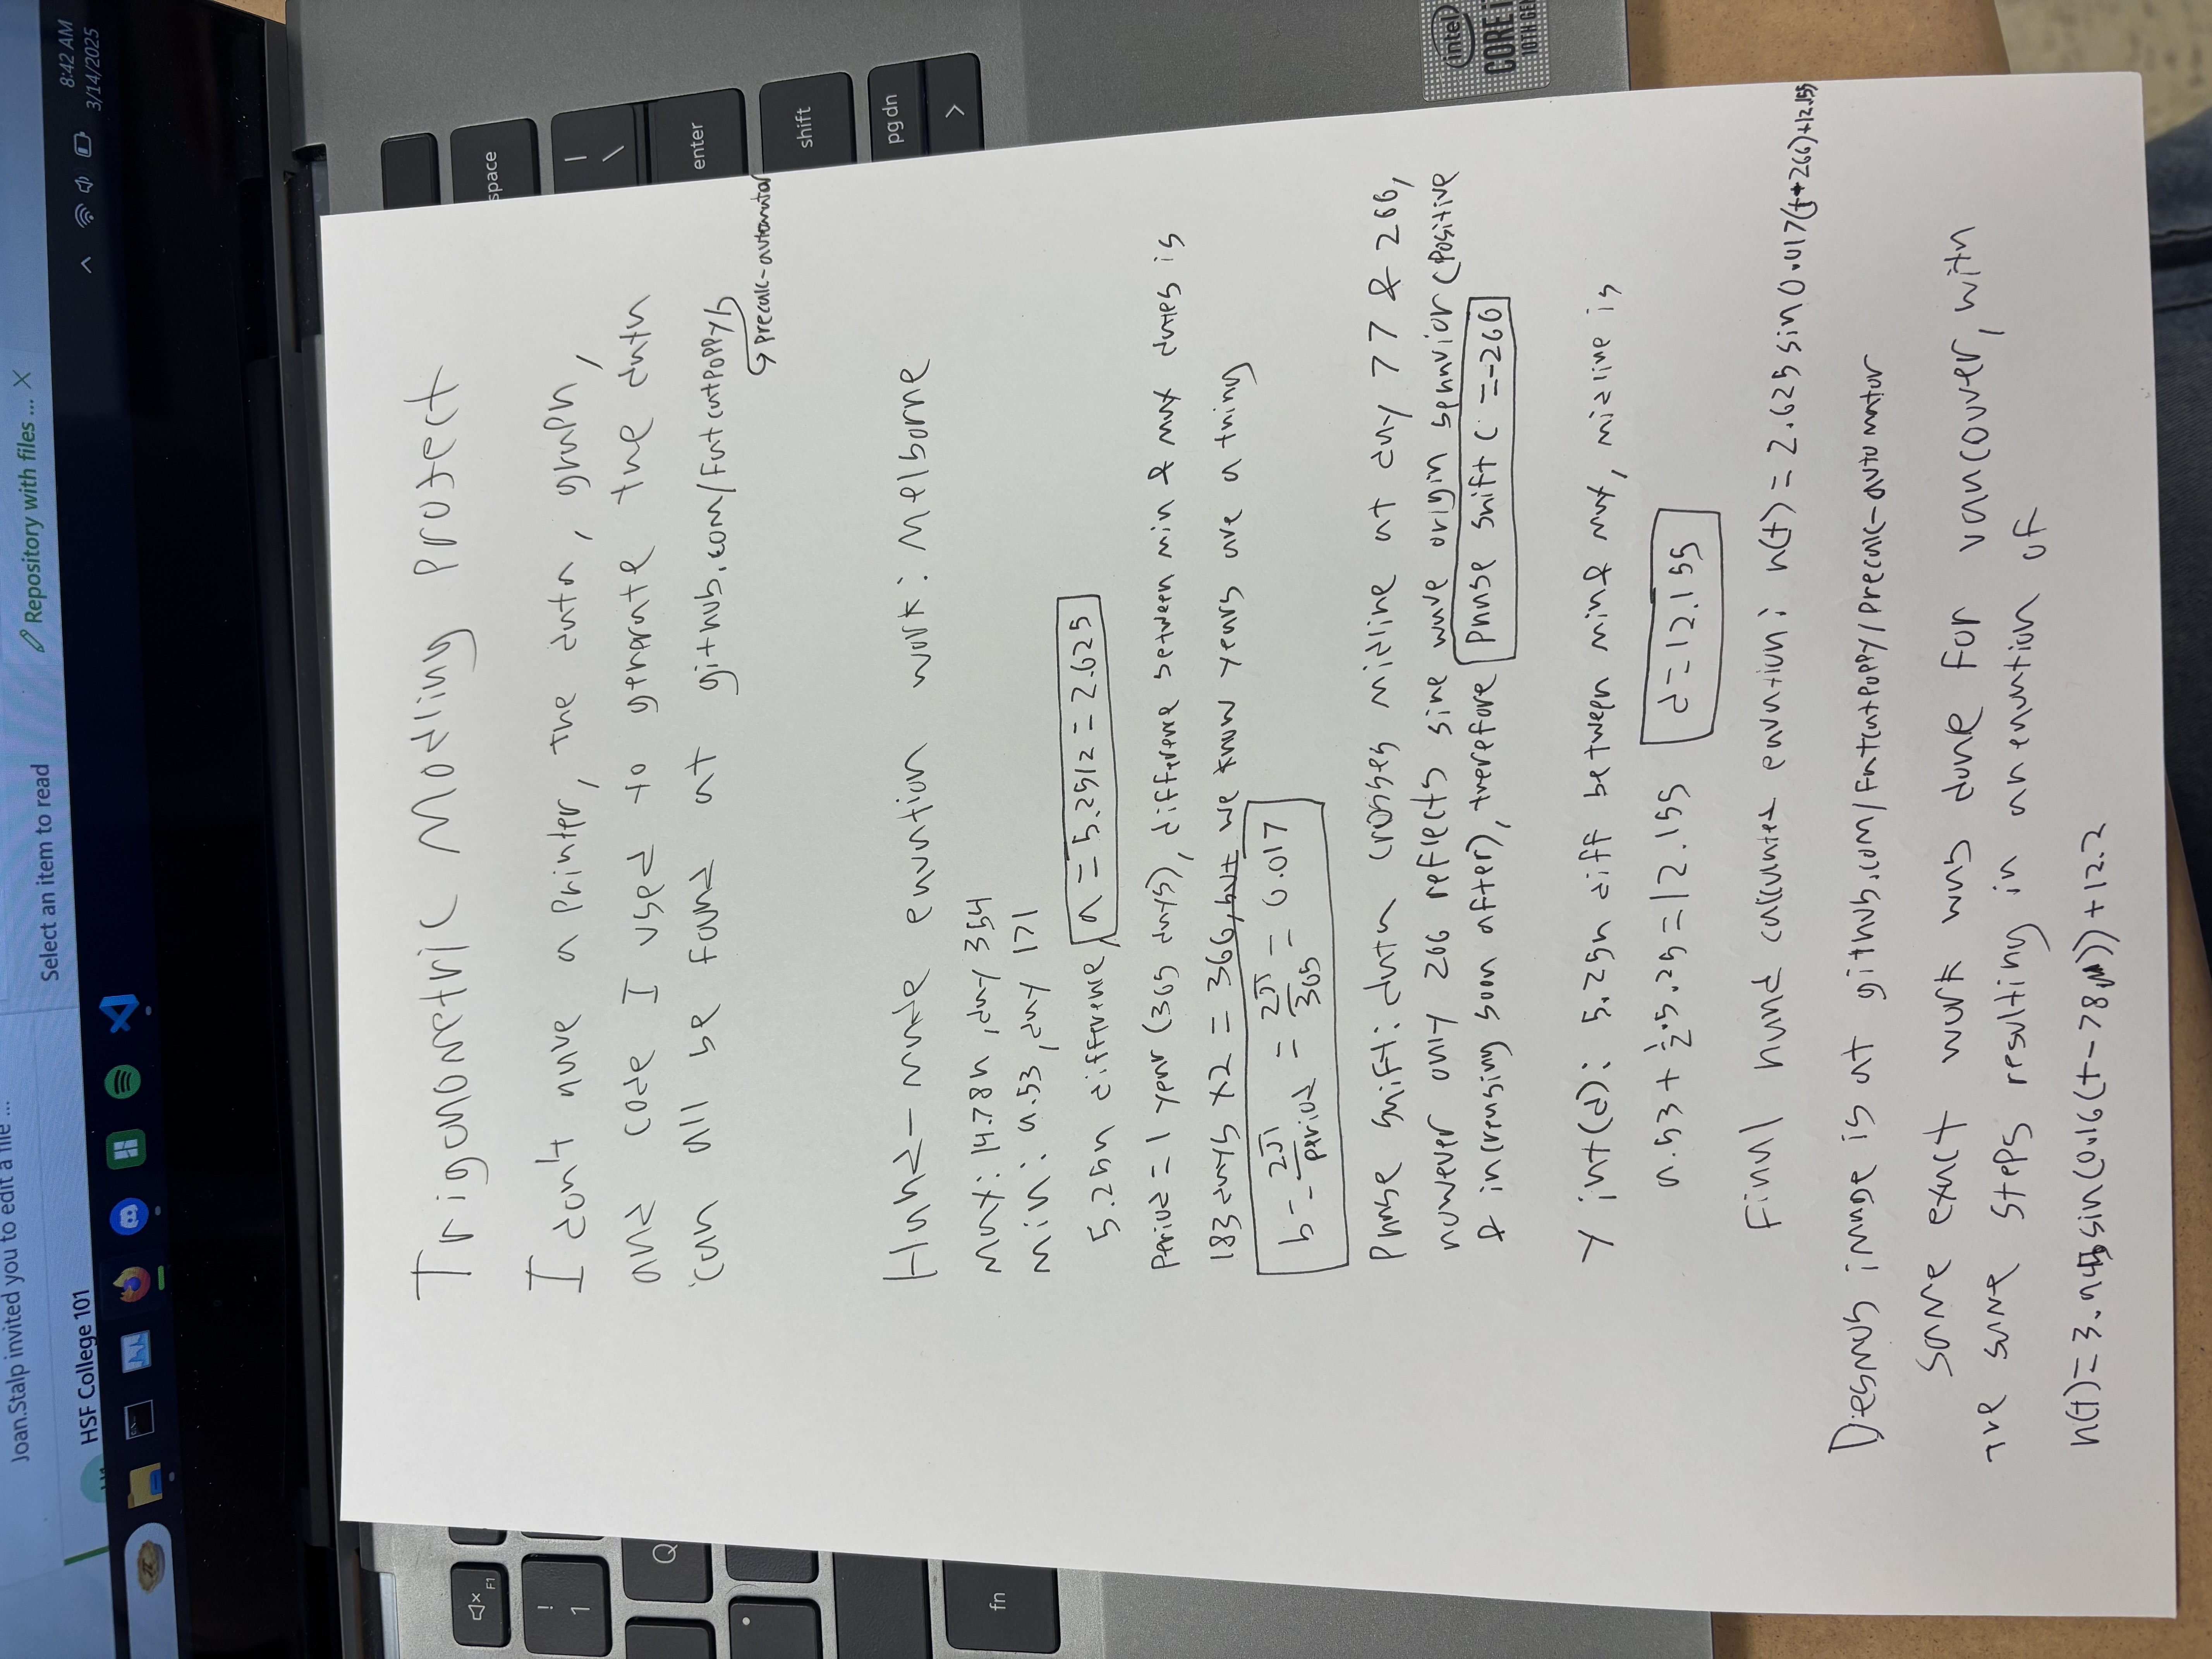 Joan.Stalp invited you to edit a file ...
Select an item to read
Repository with files ...
HSF College 101
8:42 AM
3/14/2025
F1
!
1
Q
fn
space
|
\
enter
shift
pg dn
>
intel
CORE i
10TH GE
Trigonometric Modling Project
I don't have a printer, the data, graph,
and code I used to generate the data
can all be found at github.com/Fatcatpoppy/
precalc-automator
Hand-made equation work: Melborne
Max: 14.78h, day 354
min: 9.53, day 171
5.25h difference, a = 5.25/2 = 2.625
Period = 1 year (365 days), difference between min & max dates is
183 days x2 = 366, but we know years are a thing
b = 2π/period = 2π/365 = 0.017
Phase shift: data crosses midline at day 77 & 266,
however only 266 reflects sine wave origin behavior (positive
& increasing soon after), therefore phase shift c = -266
Y int(d): 5.25h diff between min & max, midline is
9.53 + 1/2·5.25 = 12.155 d = 12.155
Final hand calculated equation: h(t) = 2.625 sin 0.017(t+266)+12.155
Desmos image is at github.com/Fatcatpoppy/precalc-automator
same exact work was done for vancouver, with
the same steps resulting in an equation of
h(t) = 3.945 sin(0.16(t-78)) + 12.2